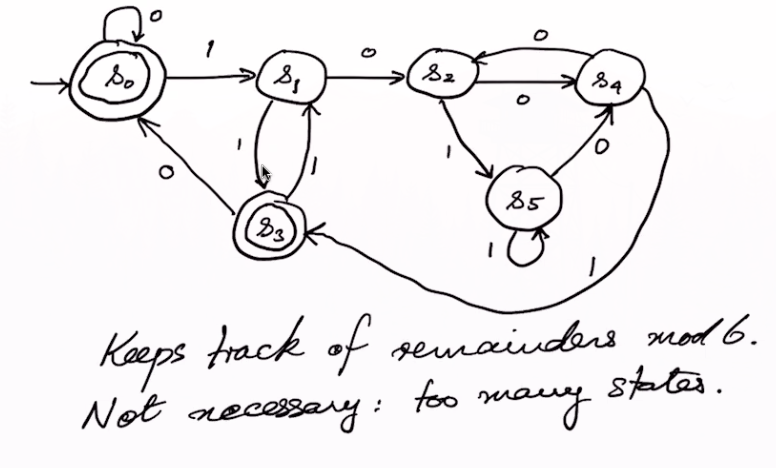 0
1 0 0
S0 S1 S2 S4
0
1 1 1 0
0 S5
S3
1 1
Keeps track of remainders mod 6.
Not necessary: too many states.